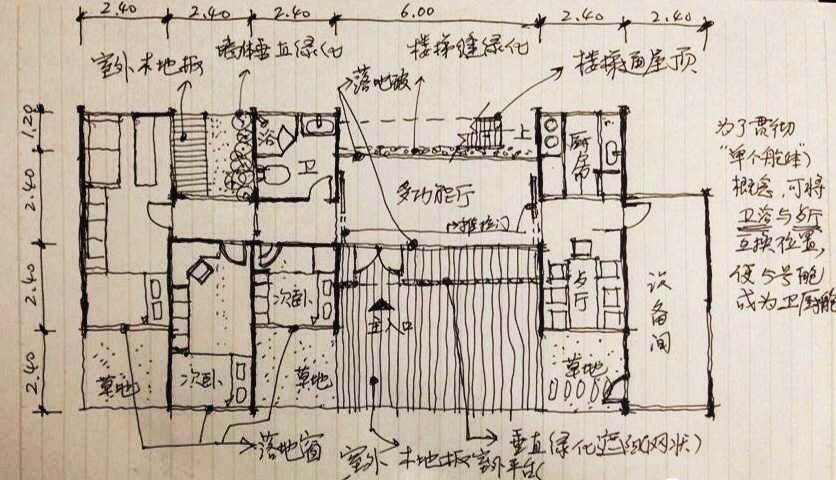 2.40 2.40 2.40 6.00 2.40 2.40
室外木地板
垂直绿化
楼梯缝绿化
楼梯通屋顶
落地玻
1.20
2.40
2.40
2.40
浴
卫
上
厨房
多功能厅
推拉门
次卧
次卧
主入口
草地
草地
草地
设备间
落地窗
室外木地板室外平台
垂直绿化遮阳(网状)
为了贯彻
“单个舱娃”
概念,可将
卫浴与
互换位置,
使5号舱
成为卫厨舱